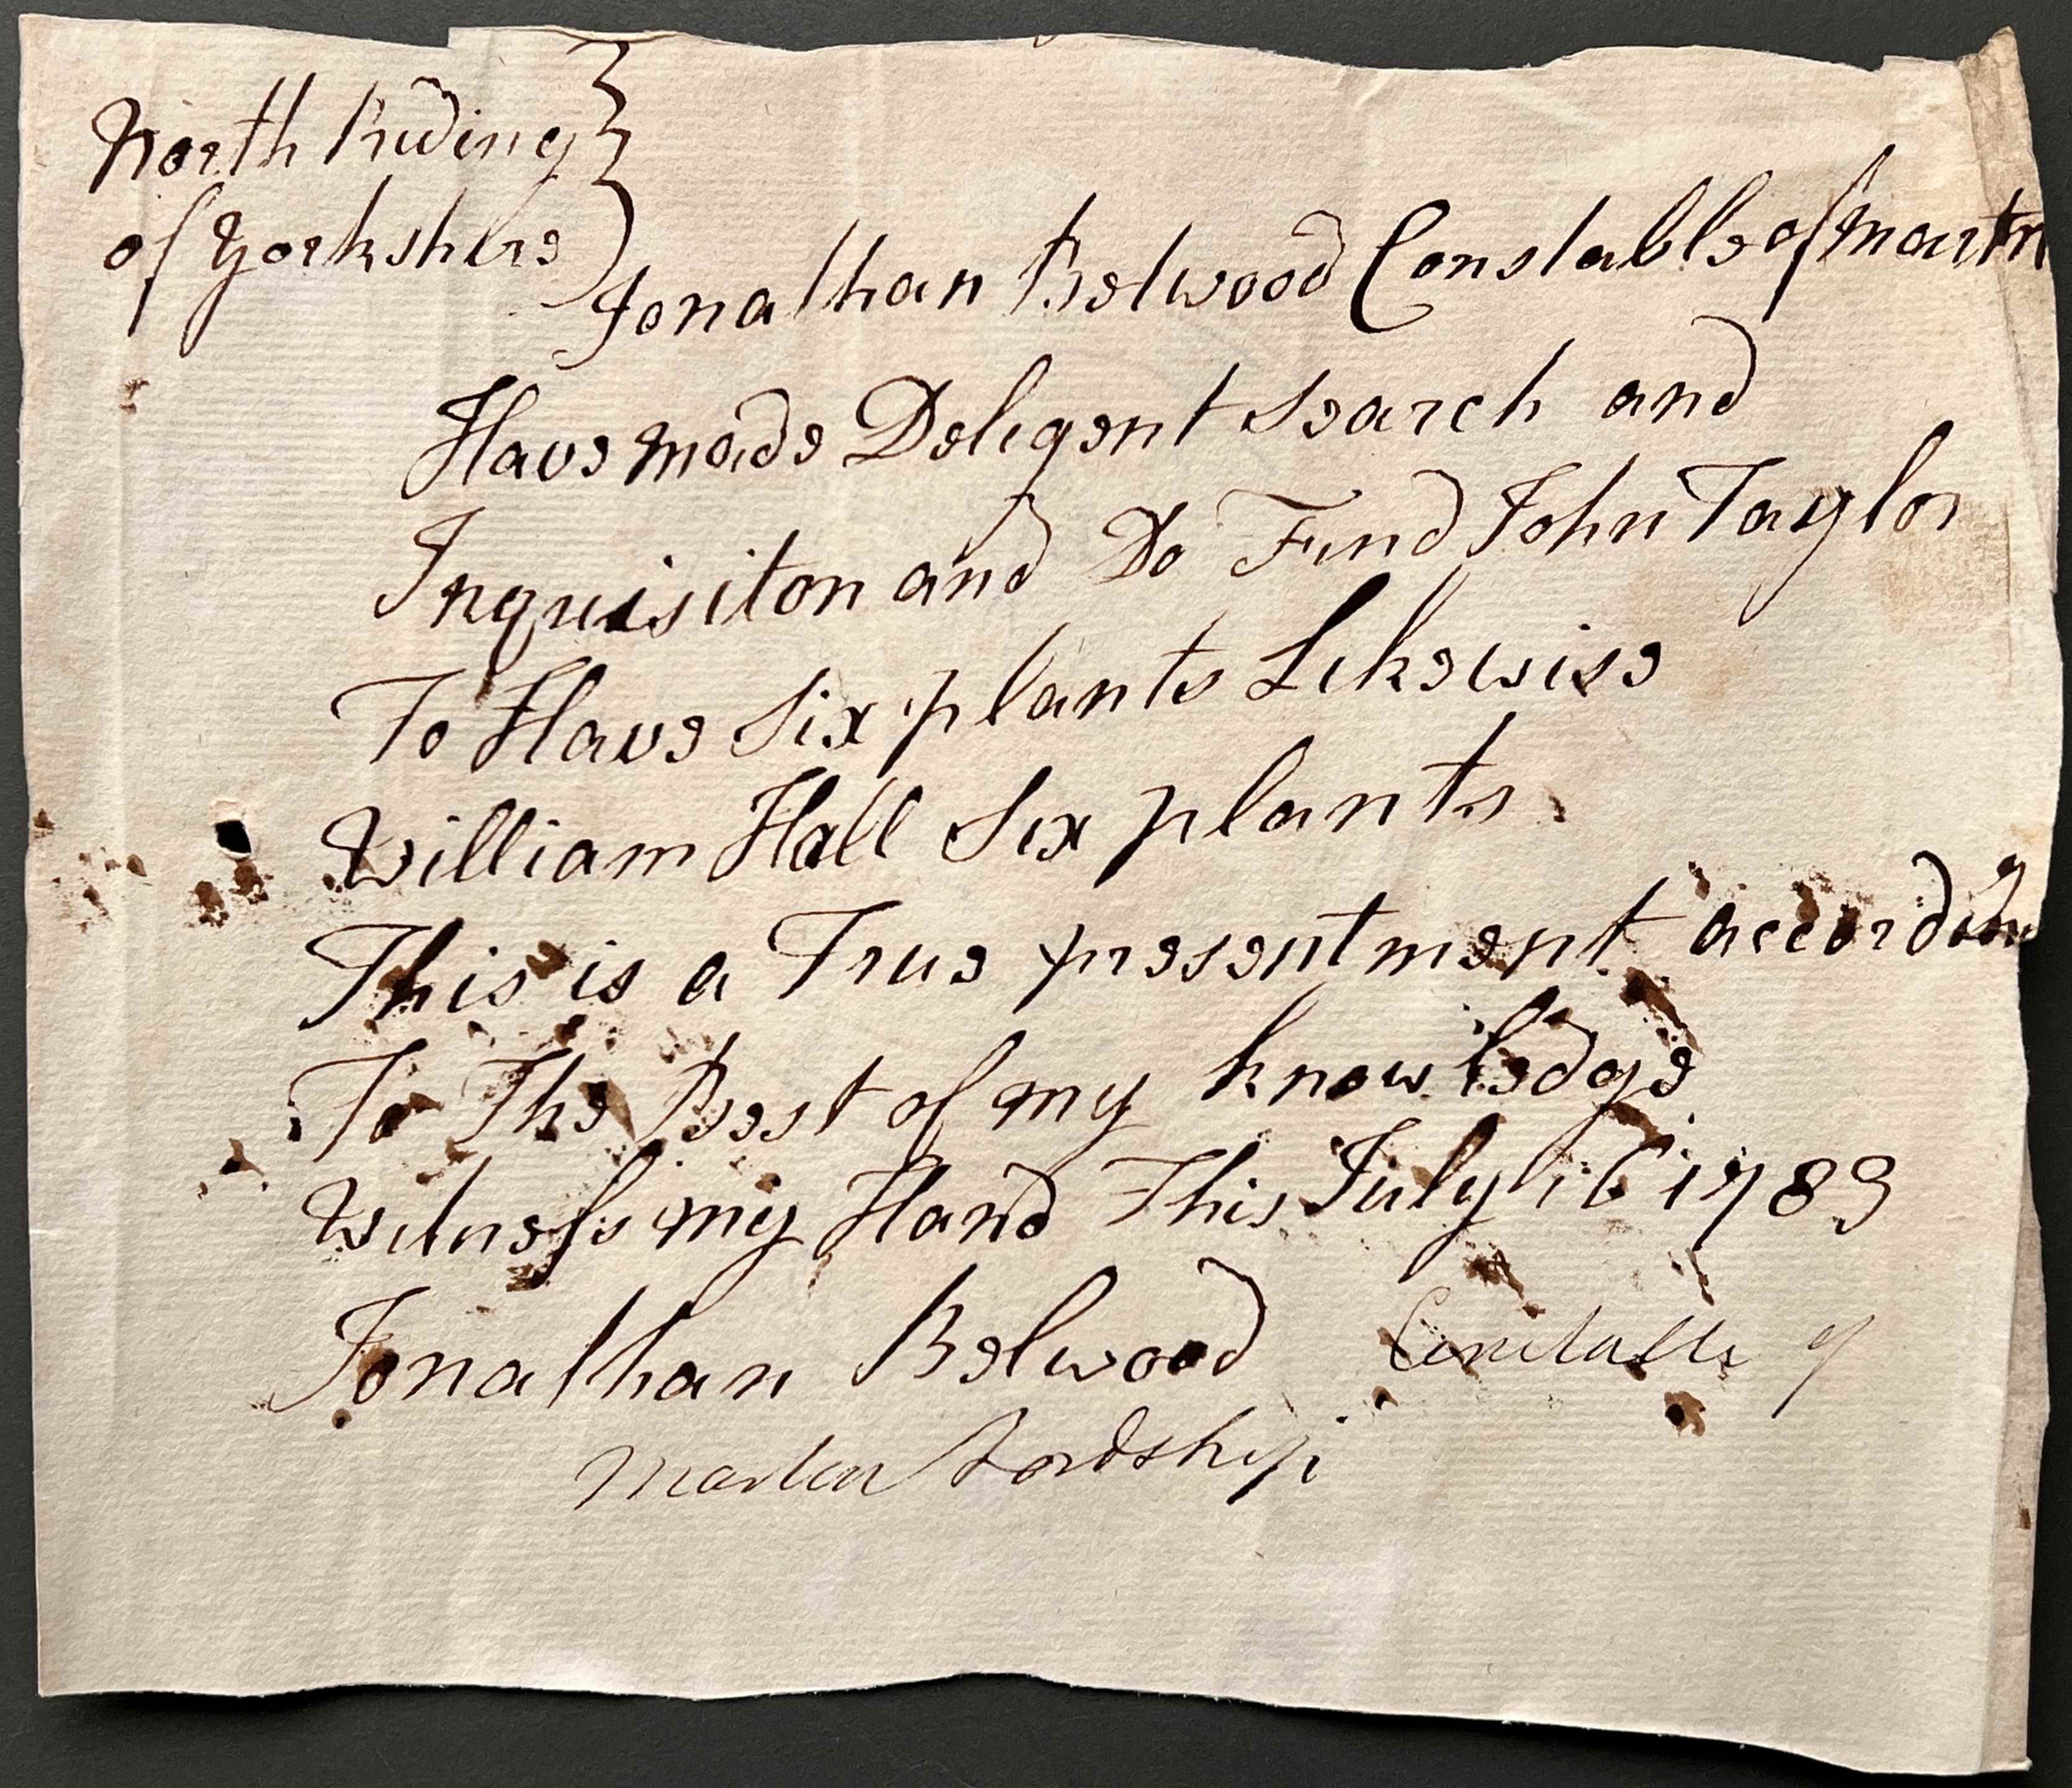 North Riding
of Yorkshire
Jonathan Belwood Constable of Martn
Have made Deligent Search and
Inquisiton and Do Find John Taylor
To Have Six plants Likewise
William Hall Six plants
This is a True presentment according
To The Best of my knowledge
Witness my Hand This July 16 1783
Jonathan Belwood Constable of
Marton Lordship